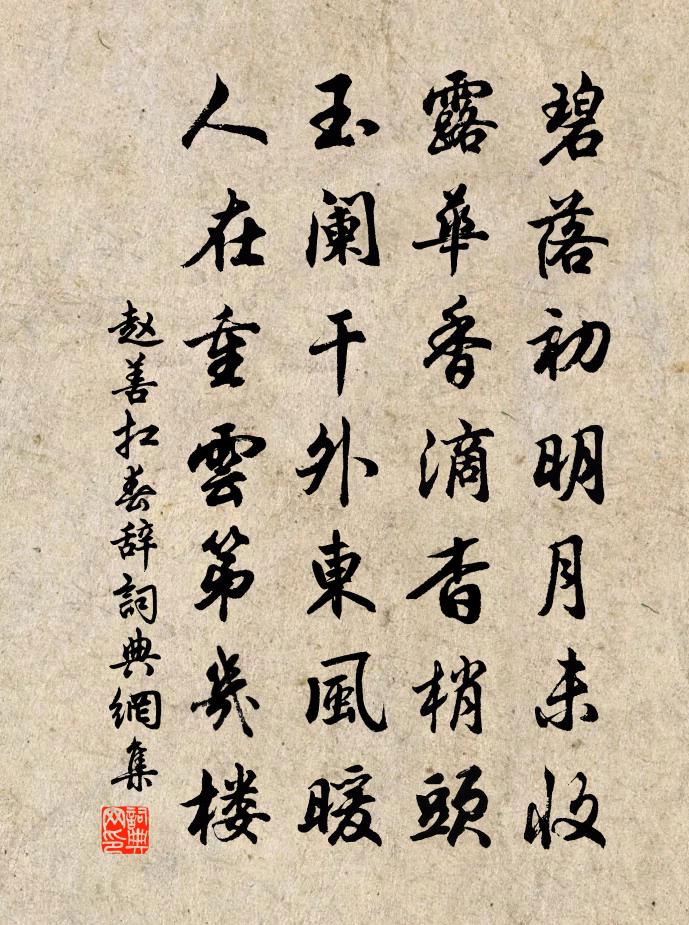 碧落初明月未收
露華香滴杏梢頭
玉闌干外東風暖
人在重雲第幾楼
赵善扛春辞詞典網集
詞典网印